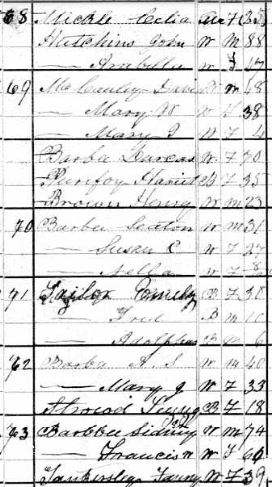 68 Mickle Celia F 25
Hutchins John W M 88
— Arabella W F 47
69 McCauley David W M 48
— Mary W W F 38
— Mary W F 4
Barbee Darcas W F 70
Purefoy Hariet B F 35
Brown Henry W M 23
70 Barbee Seaton W M 31
— Susan E W F 27
— Nella W F
71 Tailor Emily B F 30
— Fred B M 10
— Adolphus B M 6
72 Barbee A. S. W M 40
— Mary J W F 33
Atwood B F 18
73 Barbbee Sidney W M 74
— Francis W F
Tankersley Fanny W F 39